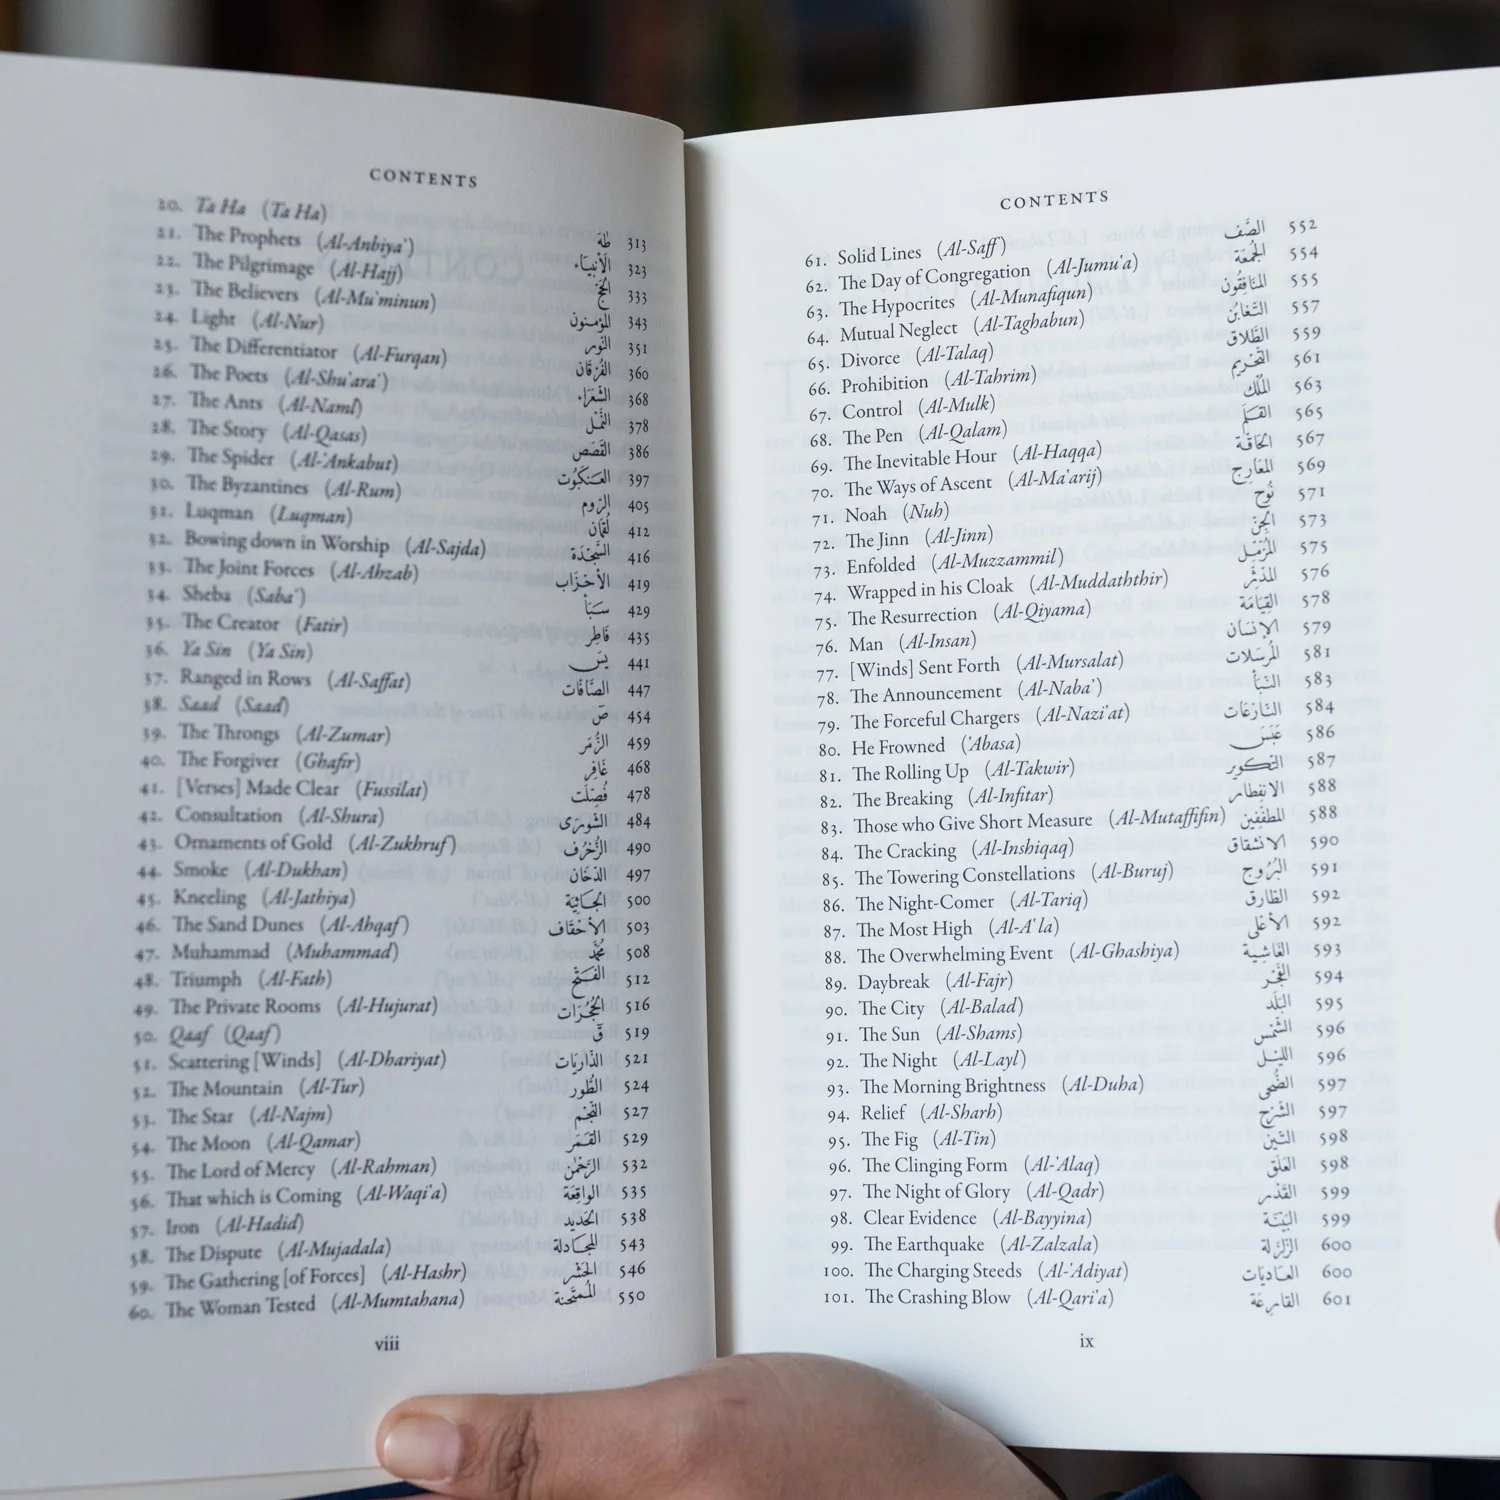 CONTENTS
20. Ta Ha (Ta Ha) طٰهٰ 313
21. The Prophets (Al-Anbiya') الأنبيَاء 323
22. The Pilgrimage (Al-Hajj) الحَجّ 333
23. The Believers (Al-Mu'minun) المؤمنون 343
24. Light (Al-Nur) النُّور 351
25. The Differentiator (Al-Furqan) الفُرْقان 360
26. The Poets (Al-Shu'ara') الشُّعَرَاء 368
27. The Ants (Al-Naml) النَّمْل 378
28. The Story (Al-Qasas) القَصَص 386
29. The Spider (Al-'Ankabut) العنكبُوت 397
30. The Byzantines (Al-Rum) الرُّوم 405
31. Luqman (Luqman) لُقْمَان 412
32. Bowing down in Worship (Al-Sajda) السَّجْدَة 416
33. The Joint Forces (Al-Ahzab) الأحْزَاب 419
34. Sheba (Saba') سَبَأ 429
35. The Creator (Fatir) فَاطِر 435
36. Ya Sin (Ya Sin) يسٓ 441
37. Ranged in Rows (Al-Saffat) الصَّافَّات 447
38. Saad (Saad) صٓ 454
39. The Throngs (Al-Zumar) الزُّمَر 459
40. The Forgiver (Ghafir) غَافِر 468
41. [Verses] Made Clear (Fussilat) فُصِّلَت 478
42. Consultation (Al-Shura) الشُّورَى 484
43. Ornaments of Gold (Al-Zukhruf) الزُّخْرُف 490
44. Smoke (Al-Dukhan) الدّخَان 497
45. Kneeling (Al-Jathiya) الجَاثِيَة 500
46. The Sand Dunes (Al-Ahqaf) الأحْقَاف 503
47. Muhammad (Muhammad) مُحَمَّد 508
48. Triumph (Al-Fath) الفَتْح 512
49. The Private Rooms (Al-Hujurat) الحُجُرَات 516
50. Qaaf (Qaaf) قٓ 519
51. Scattering [Winds] (Al-Dhariyat) الذّاريَات 521
52. The Mountain (Al-Tur) الطُّور 524
53. The Star (Al-Najm) النَّجْم 527
54. The Moon (Al-Qamar) القَمَر 529
55. The Lord of Mercy (Al-Rahman) الرَّحْمٰن 532
56. That which is Coming (Al-Waqi'a) الواقِعَة 535
57. Iron (Al-Hadid) الحَديد 538
58. The Dispute (Al-Mujadala) المجَادلة 543
59. The Gathering [of Forces] (Al-Hashr) الحَشْر 546
60. The Woman Tested (Al-Mumtahana) المُمْتَحنَة 550
viii
CONTENTS
61. Solid Lines (Al-Saff) الصَّف 552
62. The Day of Congregation (Al-Jumu'a) الجُمُعَة 554
63. The Hypocrites (Al-Munafiqun) المنَافِقُون 555
64. Mutual Neglect (Al-Taghabun) التَّغَابُن 557
65. Divorce (Al-Talaq) الطَّلاق 559
66. Prohibition (Al-Tahrim) التَّحْريم 561
67. Control (Al-Mulk) المُلْك 563
68. The Pen (Al-Qalam) القَلَم 565
69. The Inevitable Hour (Al-Haqqa) الحَاقّة 567
70. The Ways of Ascent (Al-Ma'arij) المعَارِج 569
71. Noah (Nuh) نُوح 571
72. The Jinn (Al-Jinn) الجِنّ 573
73. Enfolded (Al-Muzzammil) المُزّمّل 575
74. Wrapped in his Cloak (Al-Muddaththir) المدّثّر 576
75. The Resurrection (Al-Qiyama) القِيَامَة 578
76. Man (Al-Insan) الإنسَان 579
77. [Winds] Sent Forth (Al-Mursalat) المُرسَلات 581
78. The Announcement (Al-Naba') النّبَأ 583
79. The Forceful Chargers (Al-Nazi'at) النّازعَات 584
80. He Frowned ('Abasa) عَبَسَ 586
81. The Rolling Up (Al-Takwir) التّكوير 587
82. The Breaking (Al-Infitar) الانفطار 588
83. Those who Give Short Measure (Al-Mutaffifin) المطفّفِين 588
84. The Cracking (Al-Inshiqaq) الانشقاق 590
85. The Towering Constellations (Al-Buruj) البُرُوج 591
86. The Night-Comer (Al-Tariq) الطّارق 592
87. The Most High (Al-A'la) الأعْلى 592
88. The Overwhelming Event (Al-Ghashiya) الغَاشِية 593
89. Daybreak (Al-Fajr) الفَجْر 594
90. The City (Al-Balad) البَلَد 595
91. The Sun (Al-Shams) الشّمْس 596
92. The Night (Al-Layl) الليْل 596
93. The Morning Brightness (Al-Duha) الضُّحَى 597
94. Relief (Al-Sharh) الشَّرْح 597
95. The Fig (Al-Tin) التِّين 598
96. The Clinging Form (Al-'Alaq) العَلَق 598
97. The Night of Glory (Al-Qadr) القَدْر 599
98. Clear Evidence (Al-Bayyina) البَيّنَة 599
99. The Earthquake (Al-Zalzala) الزّلزَلة 600
100. The Charging Steeds (Al-'Adiyat) العَاديَات 600
101. The Crashing Blow (Al-Qari'a) القَارعَة 601
ix